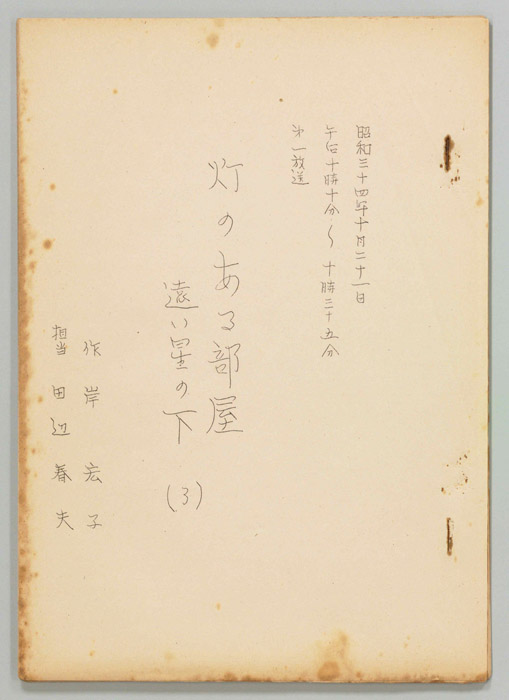 昭和三十四年十月二十一日
午后十時十分〜十時三十五分
第一放送
灯のある部屋
遠い星の下(3)
作 岸宏子
担当 田辺春夫